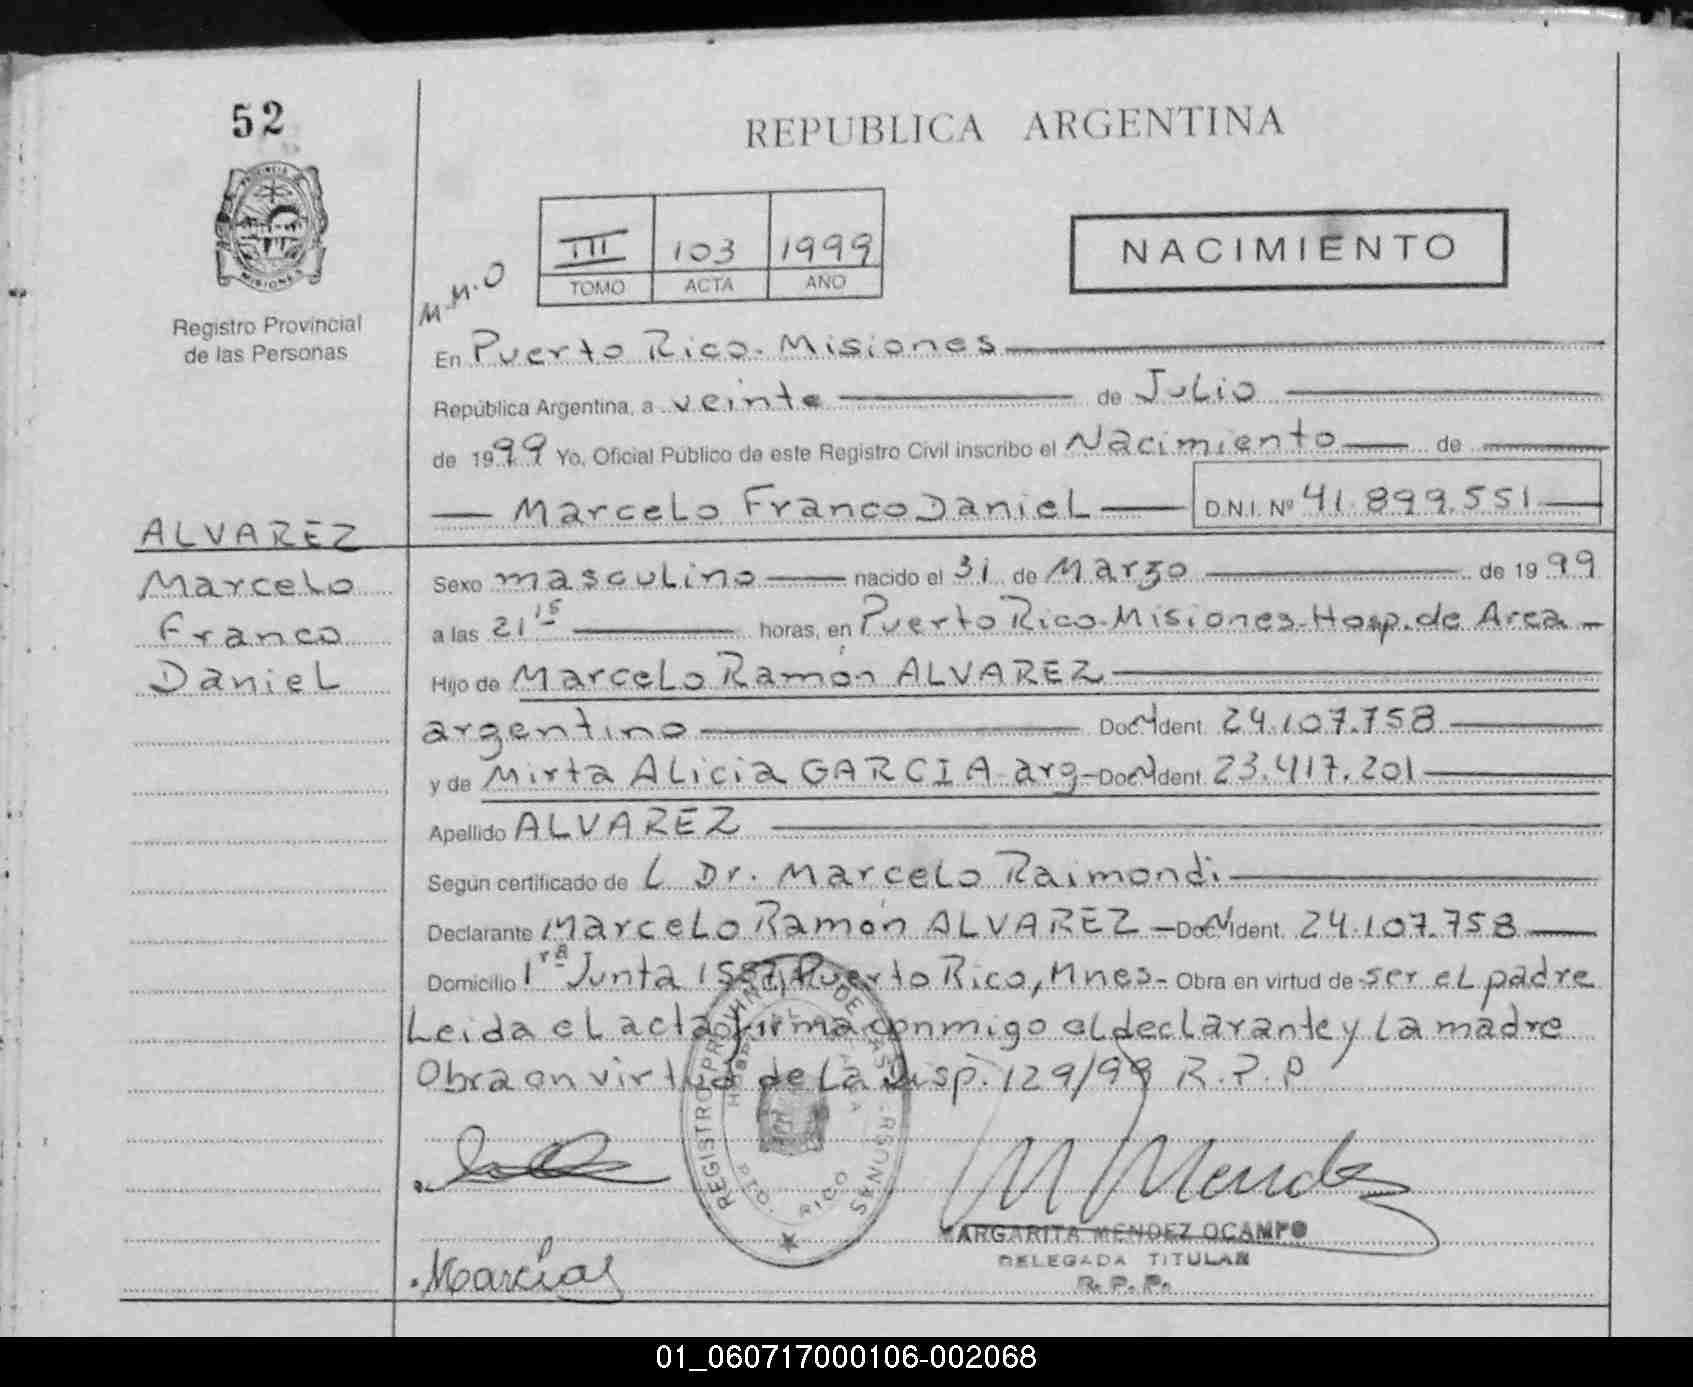 52
REPUBLICA ARGENTINA
PROVINCIA DE MISIONES
Registro Provincial
de las Personas
M.M.O
III 103 1999
TOMO ACTA AÑO
NACIMIENTO
En Puerto Rico. Misiones
República Argentina, a veinte de Julio
de 1999 Yo, Oficial Público de este Registro Civil inscribo el Nacimiento de
Marcelo Franco Daniel D.N.I. Nº 41.899.551
ALVAREZ
Marcelo
Franco
Daniel
Sexo masculino nacido el 31 de Marzo de 1999
a las 21 15 horas, en Puerto Rico-Misiones-Hosp. de Area
Hijo de Marcelo Ramón ALVAREZ
argentino Doc. Ident. 24.107.758
y de Mirta Alicia GARCIA arg- Doc. Ident. 23.417.201
Apellido ALVAREZ
Según certificado de L Dr. Marcelo Raimondi
Declarante Marcelo Ramón ALVAREZ - Doc. Ident. 24.107.758
Domicilio 1ra Junta Puerto Rico, Mnes- Obra en virtud de ser el padre
Leida el acta firma conmigo el declarante y la madre
Obra en virtud de la Disp. 129/99 R.P.P
REGISTRO PROVINCIAL DE LAS PERSONAS
PTO. RICO
M Mendez
MARGARITA MENDEZ OCAMPO
DELEGADA TITULAR
R. P. P.
01_060717000106-002068